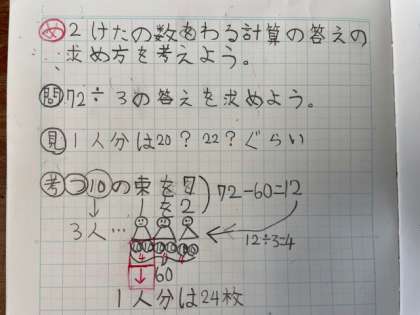 め 2けたの数をわる計算の答えの
求め方を考えよう。
問 72÷3の答えを求めよう。
見 1人分は20？22？ぐらい
考 10の束を7
1を2
72-60=12
3人…
12÷3=4
10 10 10 10 10 10
4 4 4
↓ 60
1人分は24枚